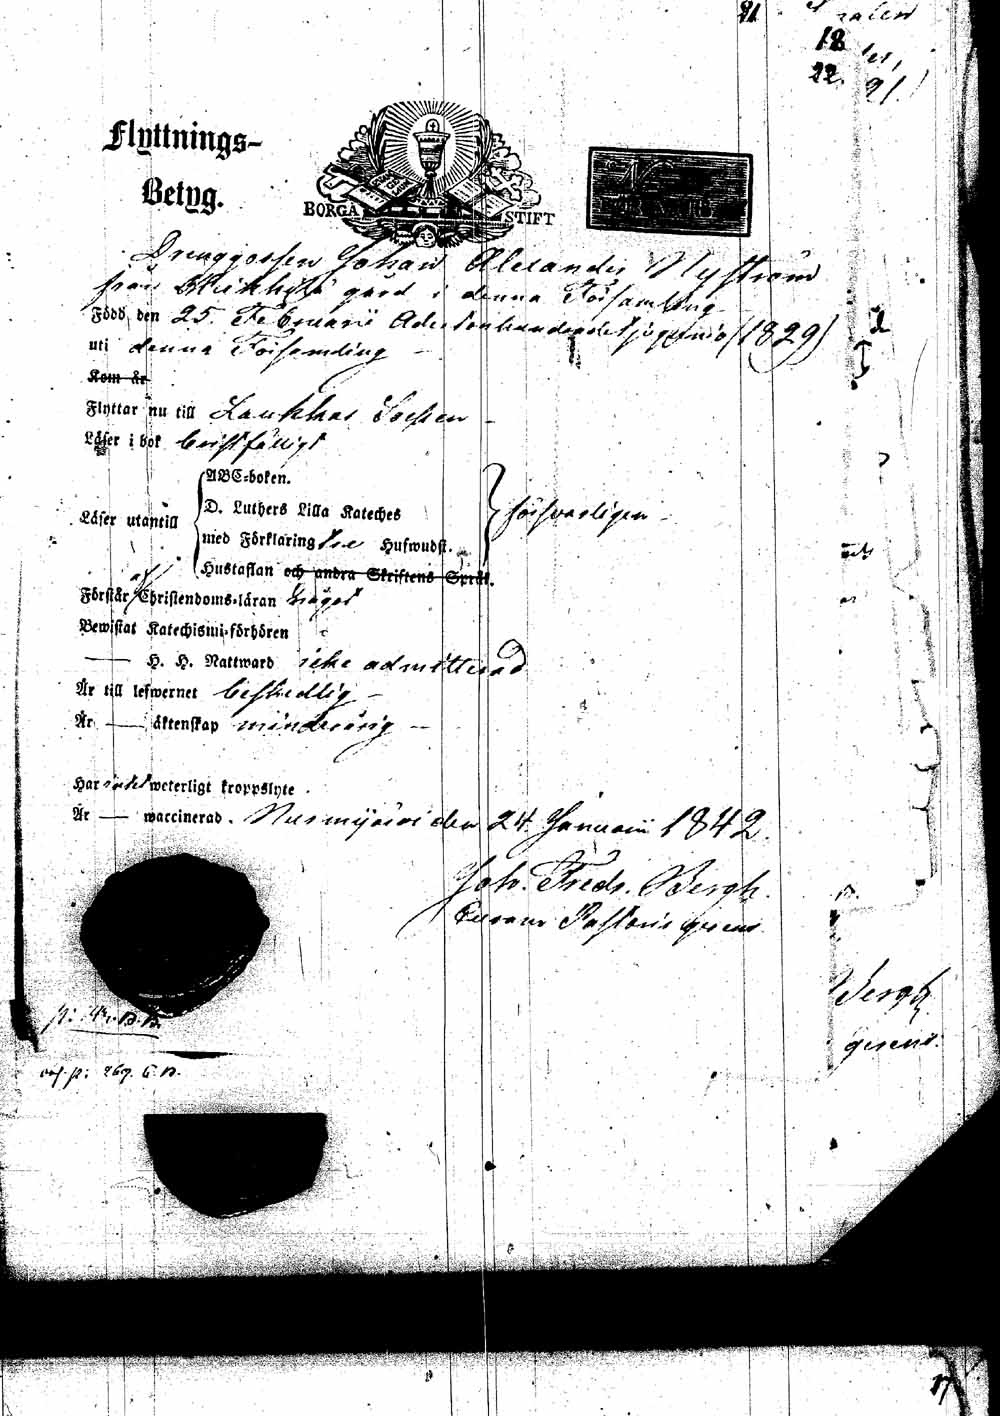 21
18
22.
Flyttnings-
Betyg.
BORGÅ STIFT
Drenggossen Johan Alexander Nyström
från gård i denna Församling
Född den 25. Februarii Adertonhundradetjugunio (1829)
uti denna Församling
Kom år
Flyttar nu till Socken
Läser i bok bristfälligt
ABC-boken.
Läser utantill D. Luthers Lilla Kateches försvarligen
med Förklaring tre Hufwudst.
Hustaflan och andra Skriftens Språk.
Förstår af Christendoms-läran något
Bewistat Katechismi-förhören
— H. H. Nattward icke admitterad
Är till lefwernet beskedlig —
Är — äktenskap minderårig —
Har intet weterligt kroppslyte.
Är — waccinerad. Nurmijärvi den 24 Januarii 1842.
Joh. Fredr. Bergh.
Curam Pastoris gerens
Bergh
gerens.
17